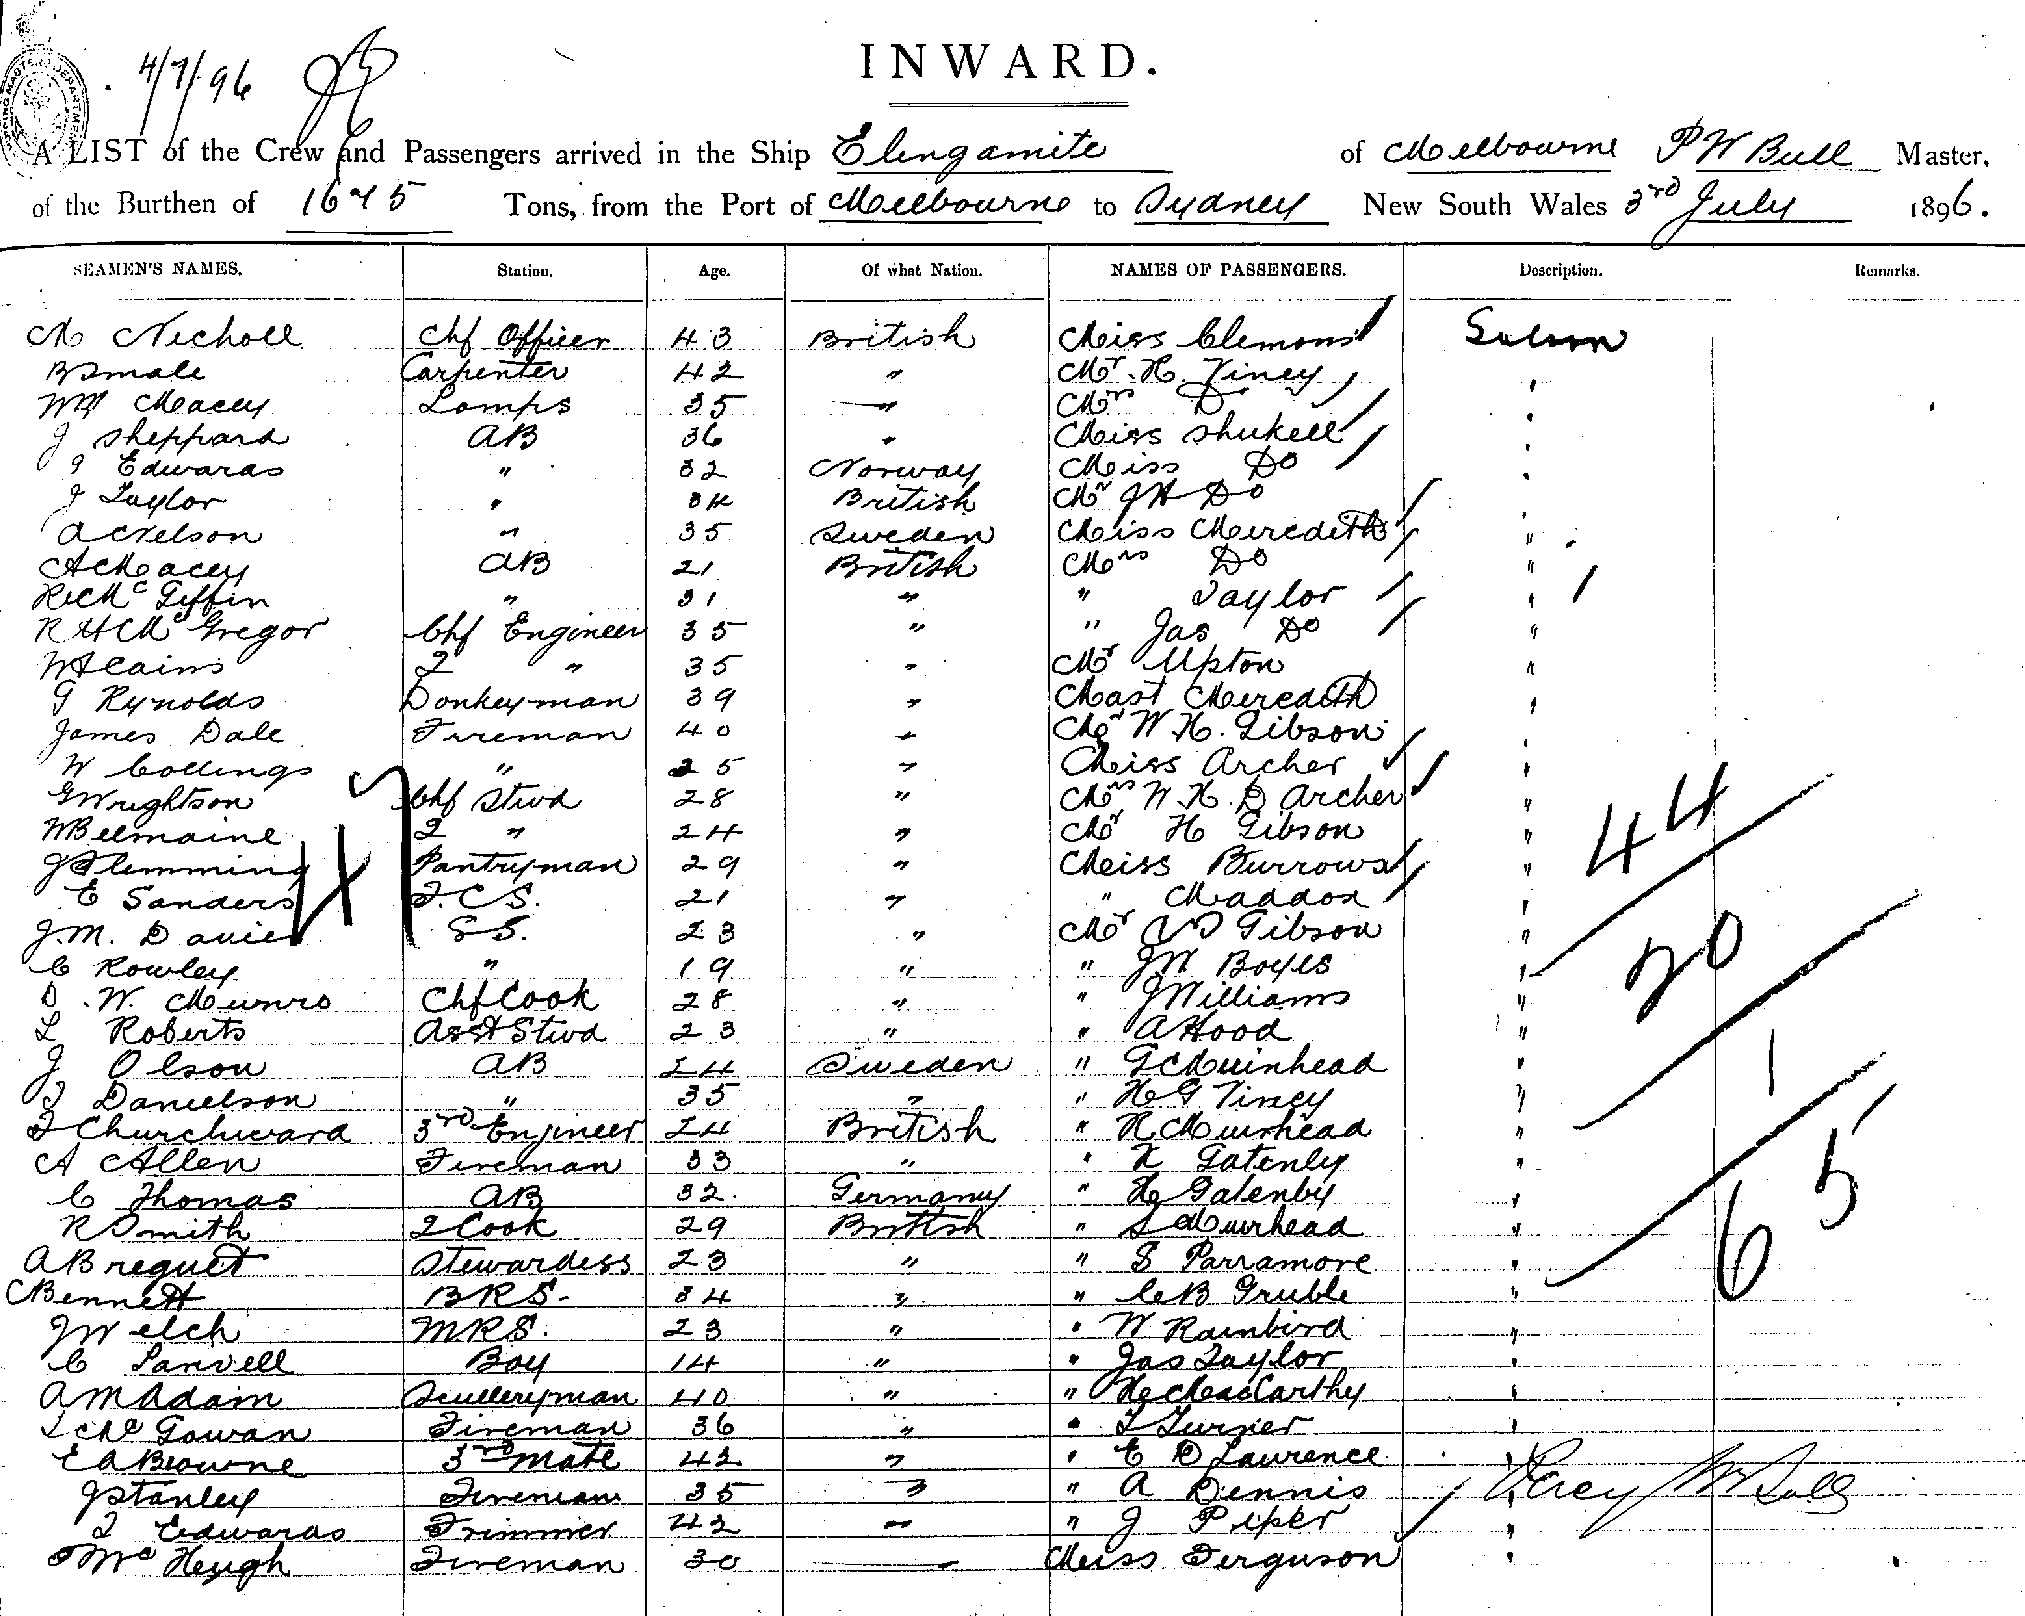 4/7/96
INWARD.
A LIST of the Crew and Passengers arrived in the Ship Elingamite of Melbourne P W Bull Master,
of the Burthen of 1675 Tons, from the Port of Melbourne to Sydney New South Wales 3rd July 1896.
SEAMEN'S NAMES. Station. Age. Of what Nation. NAMES OF PASSENGERS. Description. Remarks.
M Nicholl Chf Officer 43 British Miss Clemons Saloon
B Smale Carpenter 42 " Mr. H. Viney "
Wm Macey Lamps 35 " Mrs Do "
J Sheppard AB 36 " Miss Shukell "
J Edwards " 32 Norway Miss Do "
J Taylor " 34 British Mr J H Do "
Ackelson " 35 Sweden Miss Meredith "
A Macey AB 21 British Mrs Do "
R McGiffin " 31 " " Taylor "
R H McGregor Chf Engineer 35 " " Jas Do "
W Cains 2 " 35 " Mr Upton "
G Reynolds Donkeyman 39 " Mast Meredith "
James Dale Fireman 40 " Mr W. H. Gibson "
W Collings " 25 " Miss Archer "
G Wrightson Chf Stwd 28 " Mrs W. H. D Archer "
W Belmaine 2 " 24 " Mr H Gibson "
J Flemming Pantryman 29 " Miss Burrows " 44
E Sanders F.C.S. 21 " " Maddox "
J. M. Davies S S. 23 " Mr Gibson "
C Rowley " 19 " " J W Boyes " 20
D. W. Munro Chf Cook 28 " " J Williams "
L Roberts Asst Stwd 23 " " A Hood "
J Olson AB 24 Sweden " G Muirhead " 1
J Danielson " 35 " " H G Viney "
F Churchward 3rd Engineer 24 British " R Muirhead "
A Allen Fireman 33 " " Gatenby "
C Thomas AB 32. Germany " H Gatenby " 65
R Smith 2 Cook 29 British " S Muirhead "
A Breguet Stewardess 23 " " S Parramore "
C Bennett B R S. 34 " " C B Gruble "
J Welch M R S. 23 " " W Rainbird "
C Sanvell Boy 14 " " Jas Taylor "
A M Adam Sculleryman 40 " " H MacCarthy "
L McGowan Fireman 36 " " T Turner "
E A Browne 3rd Mate 42 " " E D Lawrence "
J Stanley Fireman 35 " " A Dennis " Percy W Bull
T Edwards Trimmer 42 " " J Piper "
McHeugh Fireman 30 Miss Ferguson "